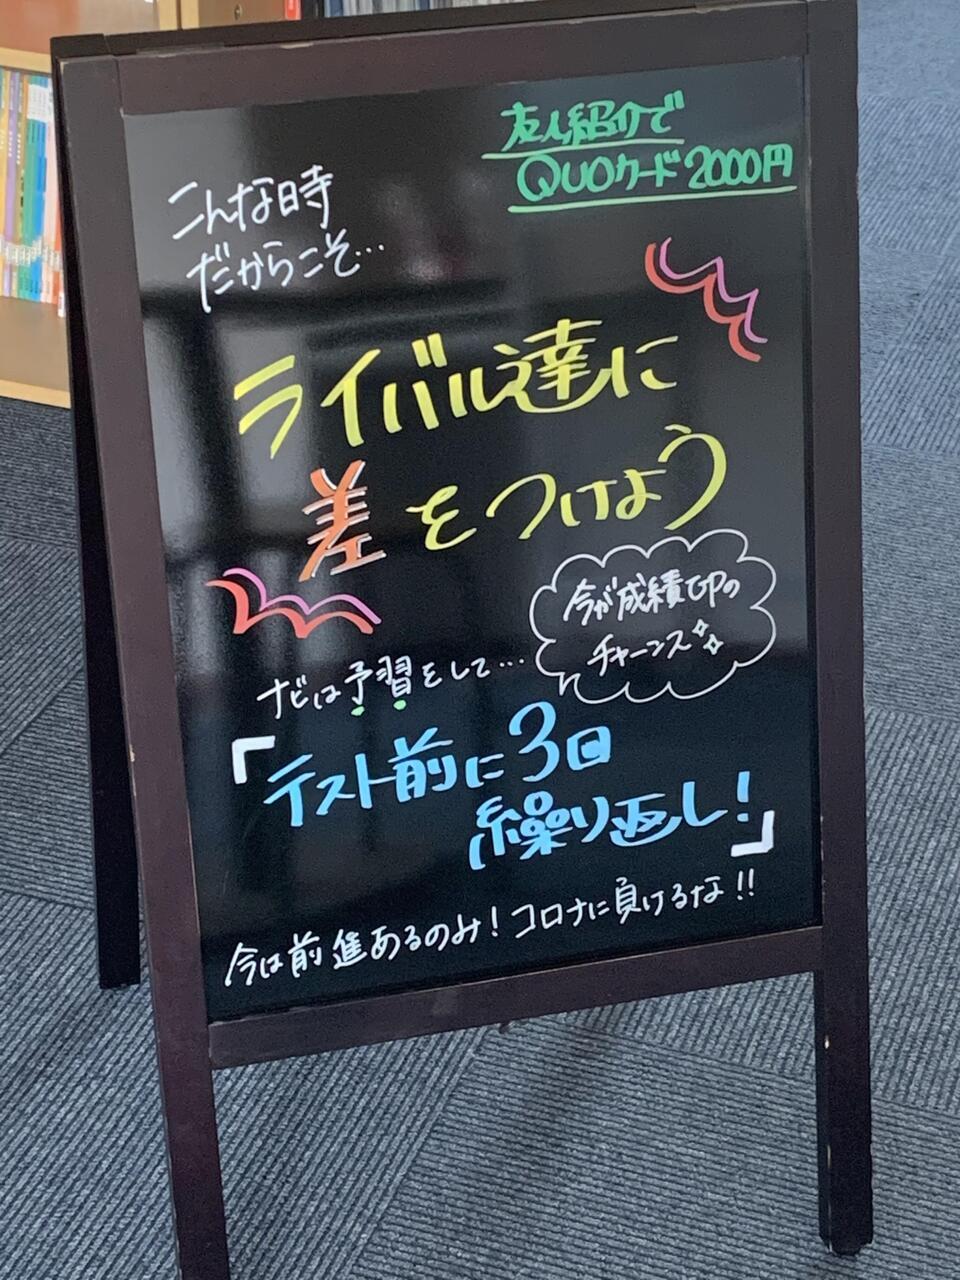 友人紹介で
QUOカード2000円
こんな時
だからこそ…
ライバル達に
差をつけよう
今が成績UPの
チャーンス
ナビは予習をして…
「テスト前に3回
繰り返し!」
今は前進あるのみ!コロナに負けるな!!